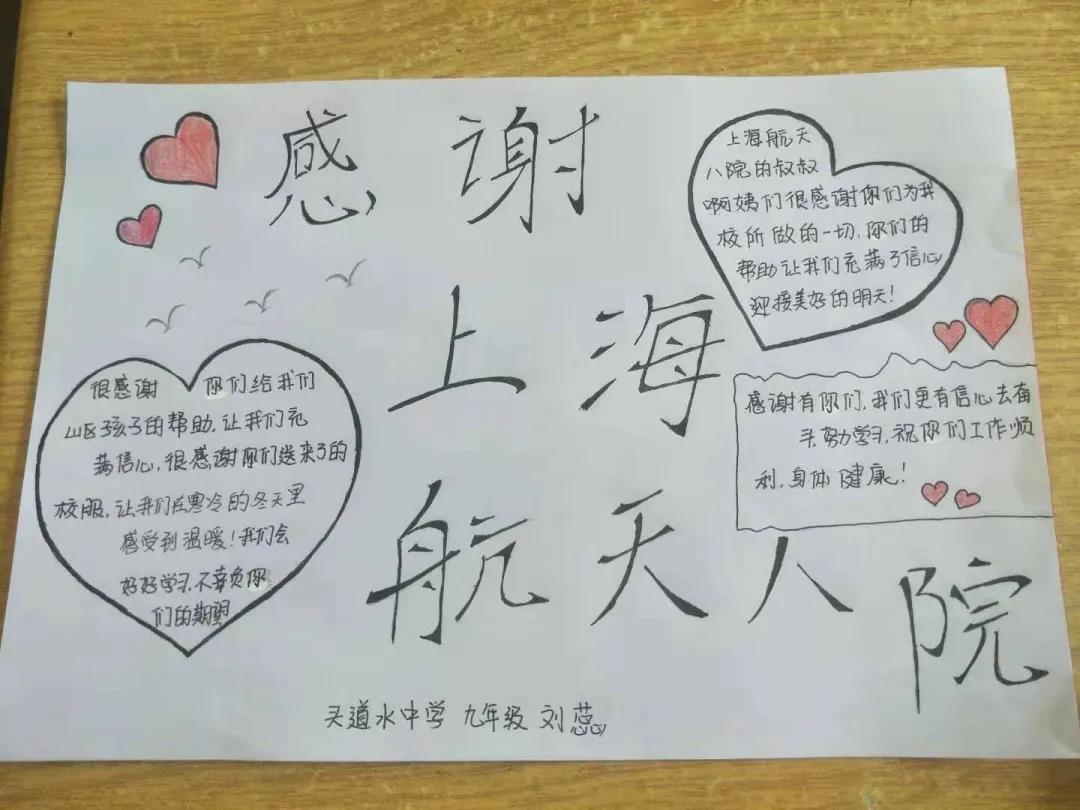 感谢
上海
航天八院
上海航天
八院的叔叔
啊姨们很感谢你们为我
校所做的一切,你们的
帮助让我们充满了信心
迎接美好的明天!
感谢有你们,我们更有信心去奋
斗努力学习,祝你们工作顺
利,身体健康!
很感谢 你们给我们
山区孩子的帮助,让我们充
满信心,很感谢你们送来了的
校服,让我们在寒冷的冬天里
感受到温暖!我们会
好好学习,不辜负你
们的期望
头道水中学 九年级 刘蕊